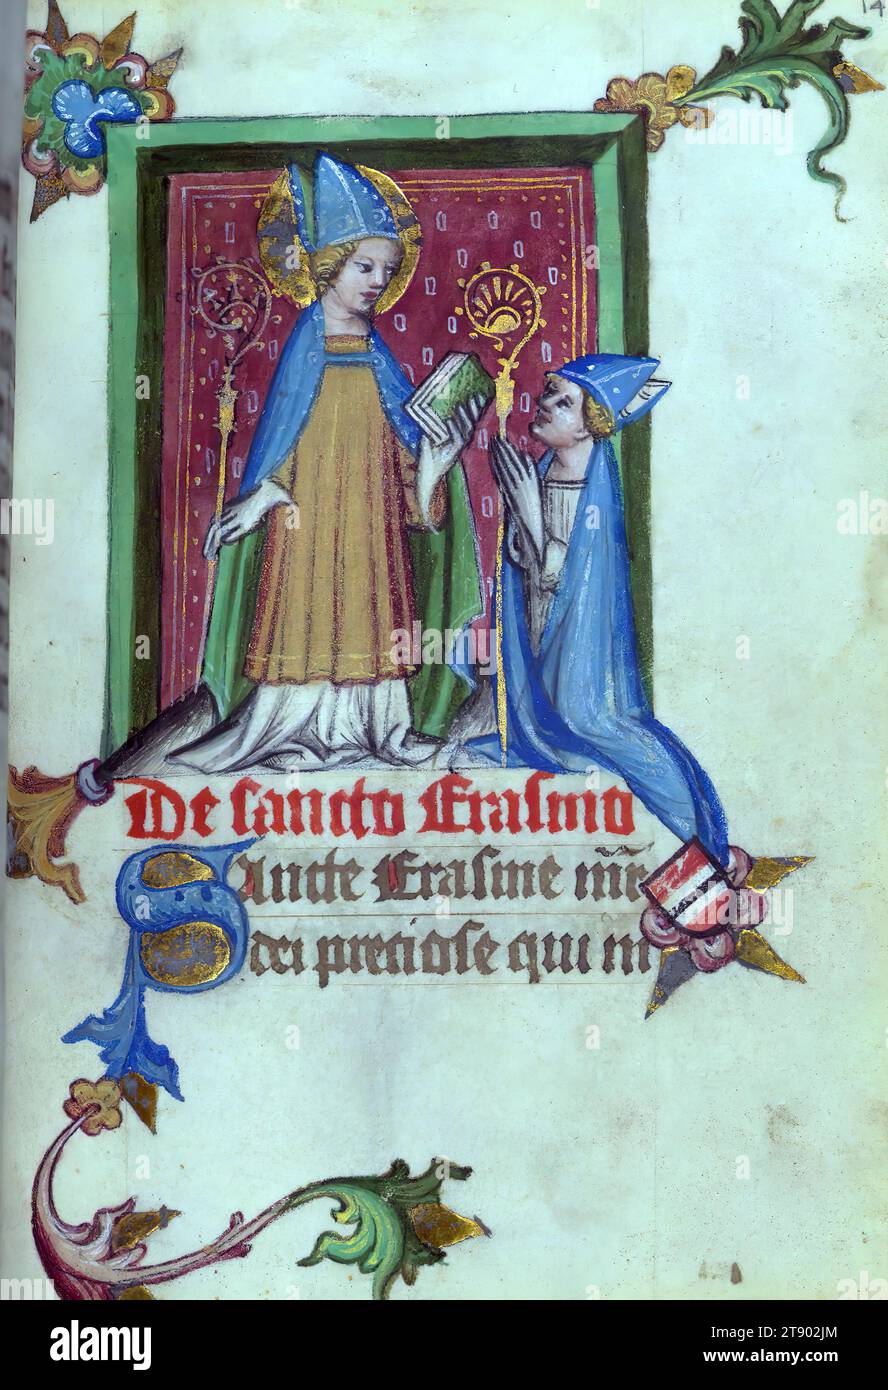 14
De sancto Erasmo
Sancte Erasme mr̄
dei preciose qui in
alamy
Image ID: 2T902JM
www.alamy.com